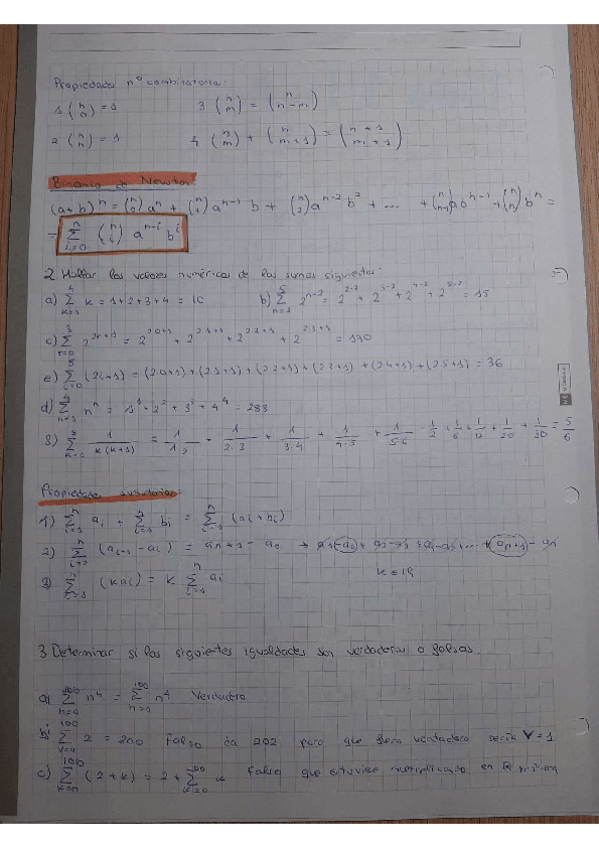 Propiedades nº combinatoria:
1 (n 0) = 1 3 (n m) = (n n-m)
2 (n n) = 1 4 (n m) + (n m+1) = (n+1 m+1)
Binomio de Newton:
(a+b)^n = (n 0) a^n + (n 1) a^n-1 b + (n 2) a^n-2 b^2 + ... + (n n-1) a b^n-1 + (n n) b^n =
= Σ i=0 n (n i) a^n-i b^i
2 Hallar los valores numéricos de las sumas siguientes:
a) Σ k=1 4 k = 1+2+3+4 = 10 b) Σ n=2 5 2^n-2 = 2^2-2 + 2^3-2 + 2^4-2 + 2^5-2 = 15
c) Σ r=0 3 2^2r+1 = 2^2·0+1 + 2^2·1+1 + 2^2·2+1 + 2^2·3+1 = 170
e) Σ i=0 5 (2i+1) = (2·0+1) + (2·1+1) + (2·2+1) + (2·3+1) + (2·4+1) + (2·5+1) = 36
d) Σ n=1 n^n = 1^1 + 2^2 + 3^3 + 4^4 = 283
1/k(k+1) = 1/2·3 + 1/3·4 + 1/4·5 + 1/5·6 = 1/2 + 1/6 + 1/12 + 1/20 + 1/30 = 5/6
Propiedades
1) Σ i=1 n ai + Σ i=1 n bi = Σ i=1 n (ai+bi)
2) Σ n (ai+1 - ai) = an+1 - a0
3) Σ i=1 n (kai) = k Σ i=1 n ai k ∈ R
3 Determinar si las siguientes igualdades son verdaderas o falsas.
a) Σ n=0 100 n^4 = Σ n=1 100 n^4 Verdadero
b) Σ v=0 100 2 = 200 Falso da 202 para que fuera verdadero sería V=1
c) Σ 100 (2+k) = 2 + Σ k=0 100 k Falso que estuviese multiplicado